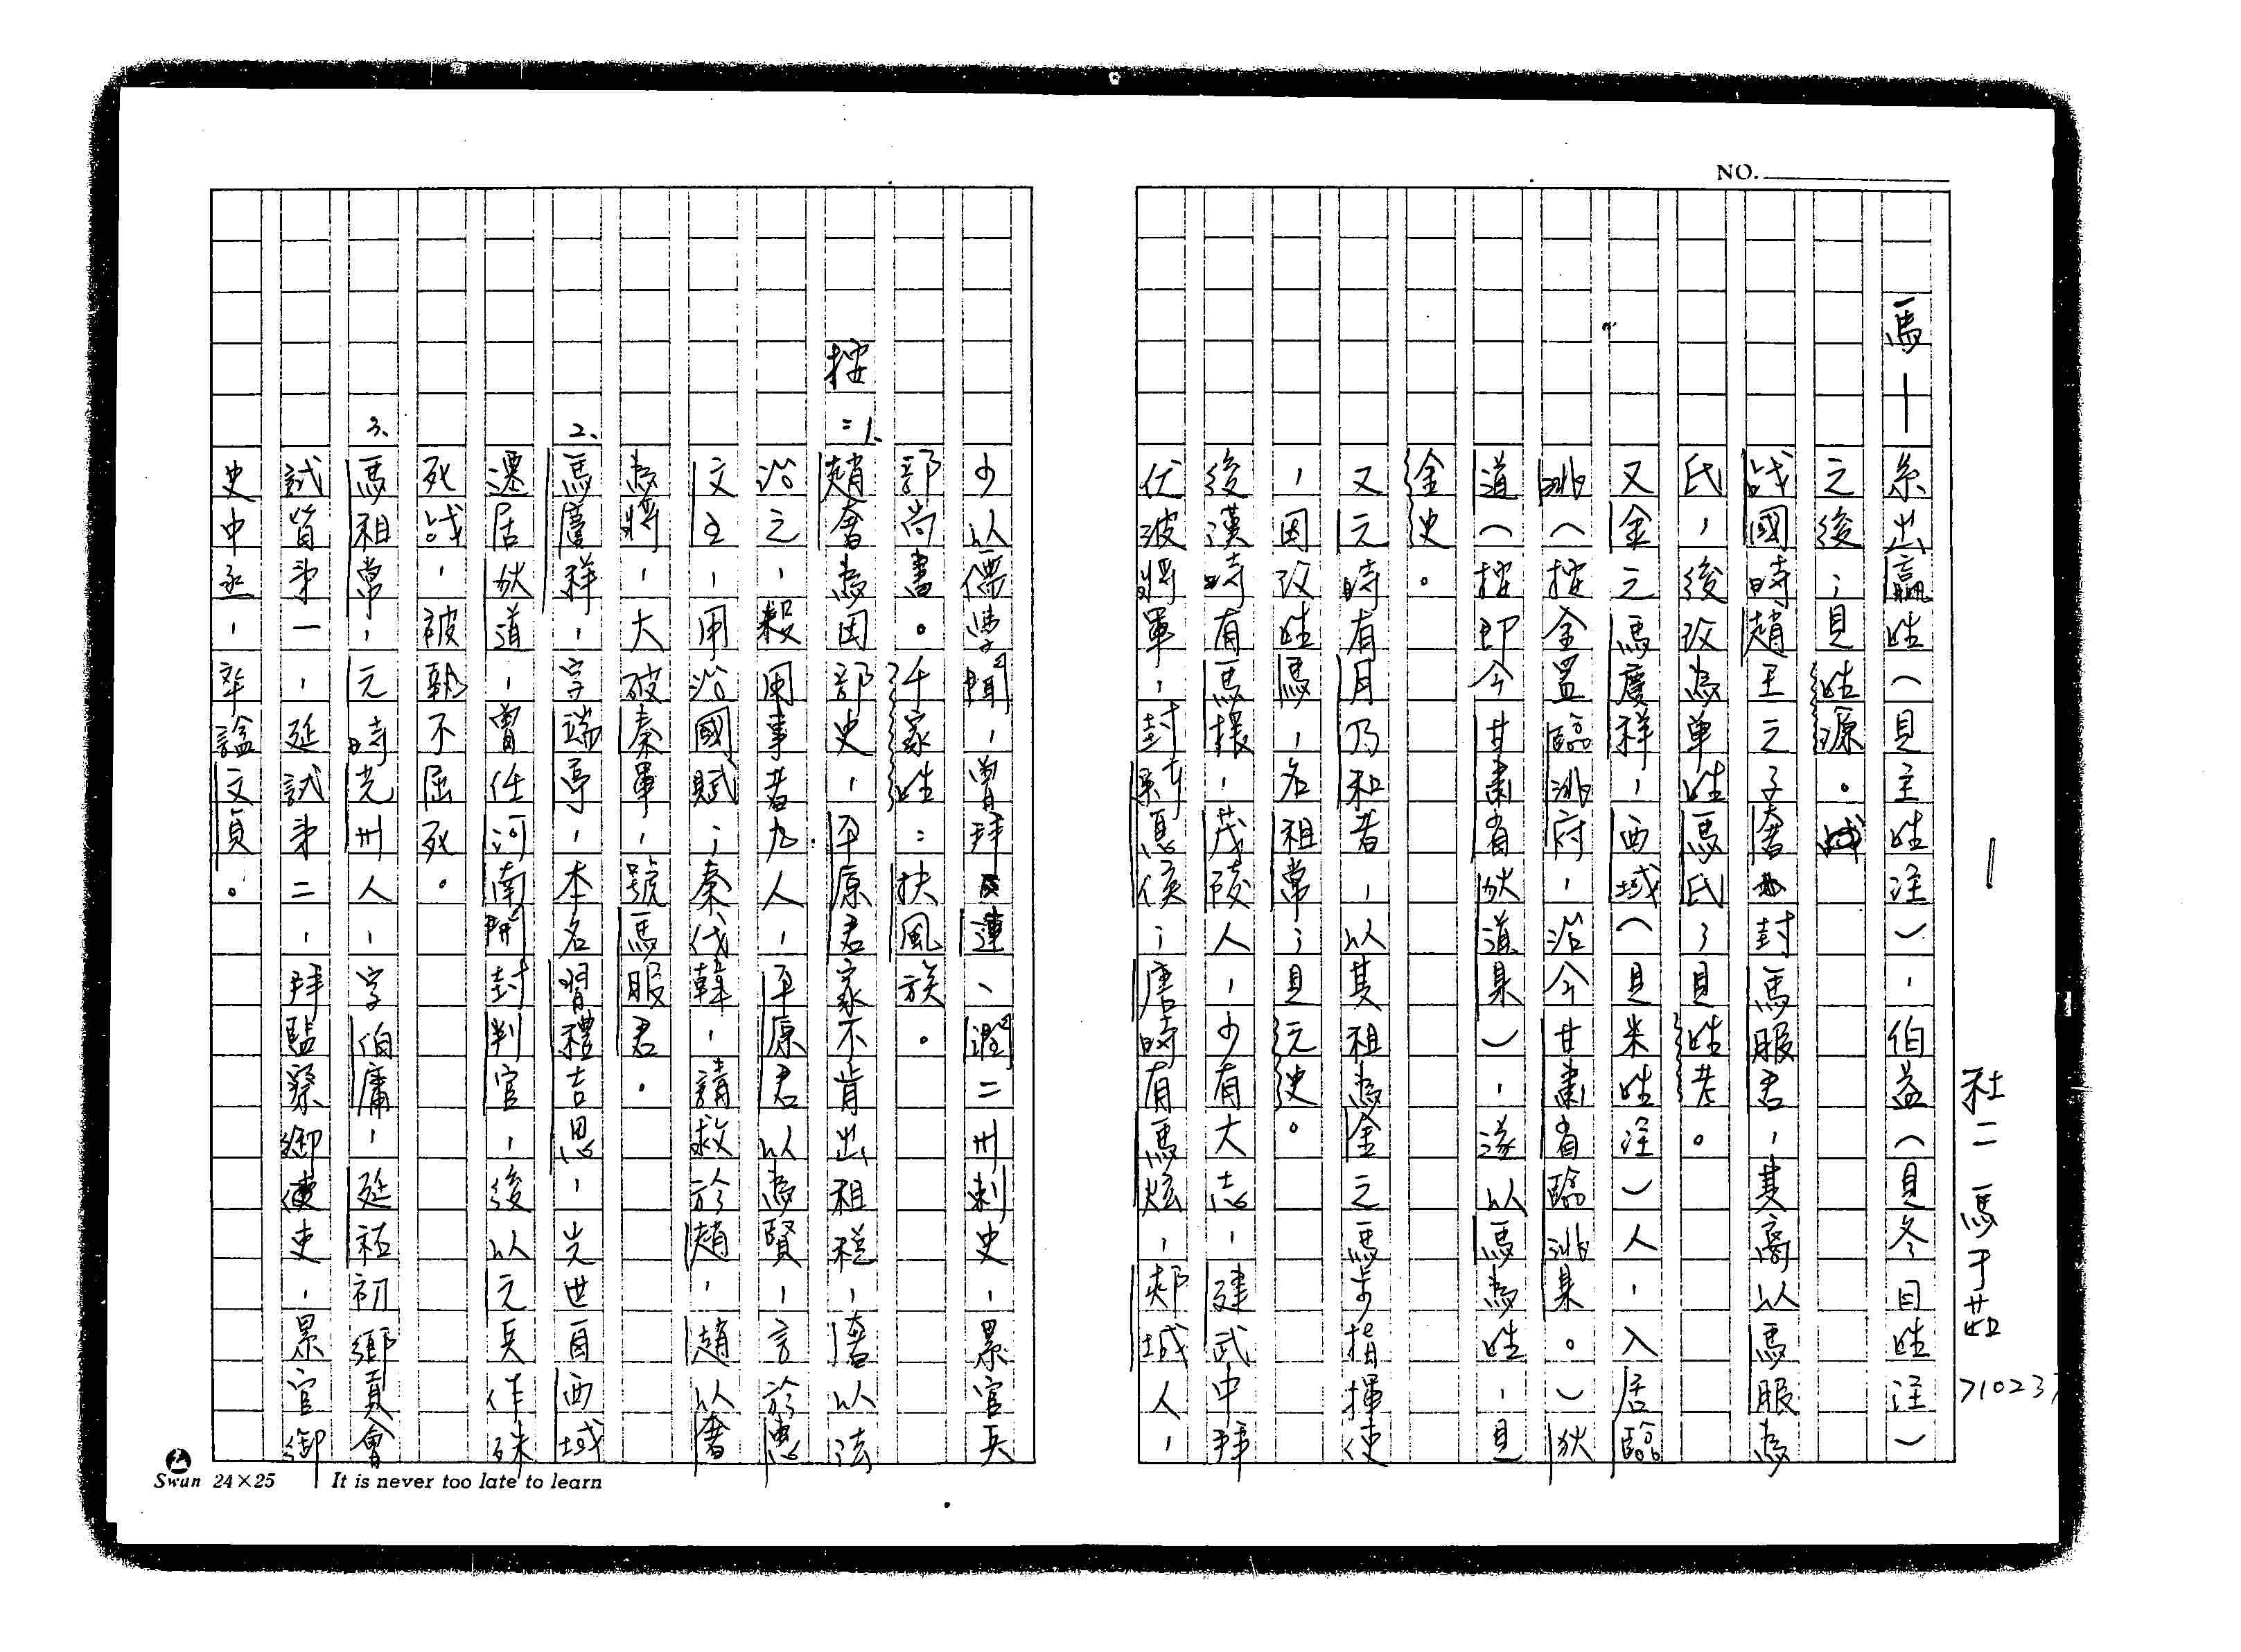 NO.
一
社二 馬于茹 710237
馬—系出嬴姓（見主姓注），伯益（見冬日姓注）
之後；見姓源。
戰國時趙王之子奢封馬服君，其裔以馬服為
氏，後改為單姓馬氏；見姓考。
又金之馬慶祥，西域（見米姓注）人，入居臨
洮（按金置臨洮府，治今甘肅省臨洮縣。）狄
道（按即今甘肅省狄道縣），遂以馬為姓，見
金史。
又元時有月乃和者，以其祖為金之馬步指揮使
，因改姓馬，名祖常；見元史。
後漢時有馬援，茂陵人，少有大志，建武中拜
伏波將軍，封新息侯；唐時有馬炫，郟城人，
少以儒學聞，曾拜連、潤二州刺史，累官兵
部尚書。千家姓：扶風族。
按：1. 趙奢為田部史，平原君家不肯出租稅，奢以法
治之，殺用事者九人，平原君以為賢，言於惠
文王，用治國賦；秦伐韓，請救於趙，趙以奢
為將，大破秦軍，號馬服君。
2. 馬慶祥，字瑞亭，本名習禮吉思，先世自西域
遷居狄道，曾任河南開封判官，後以元兵作殊
死戰，被執不屈死。
3. 馬祖常，元時光州人，字伯庸，延祐初鄉貢會
試皆第一，延試第二，拜監察御史，累官御
史中丞，卒諡文貞。
Swan 24×25 It is never too late to learn